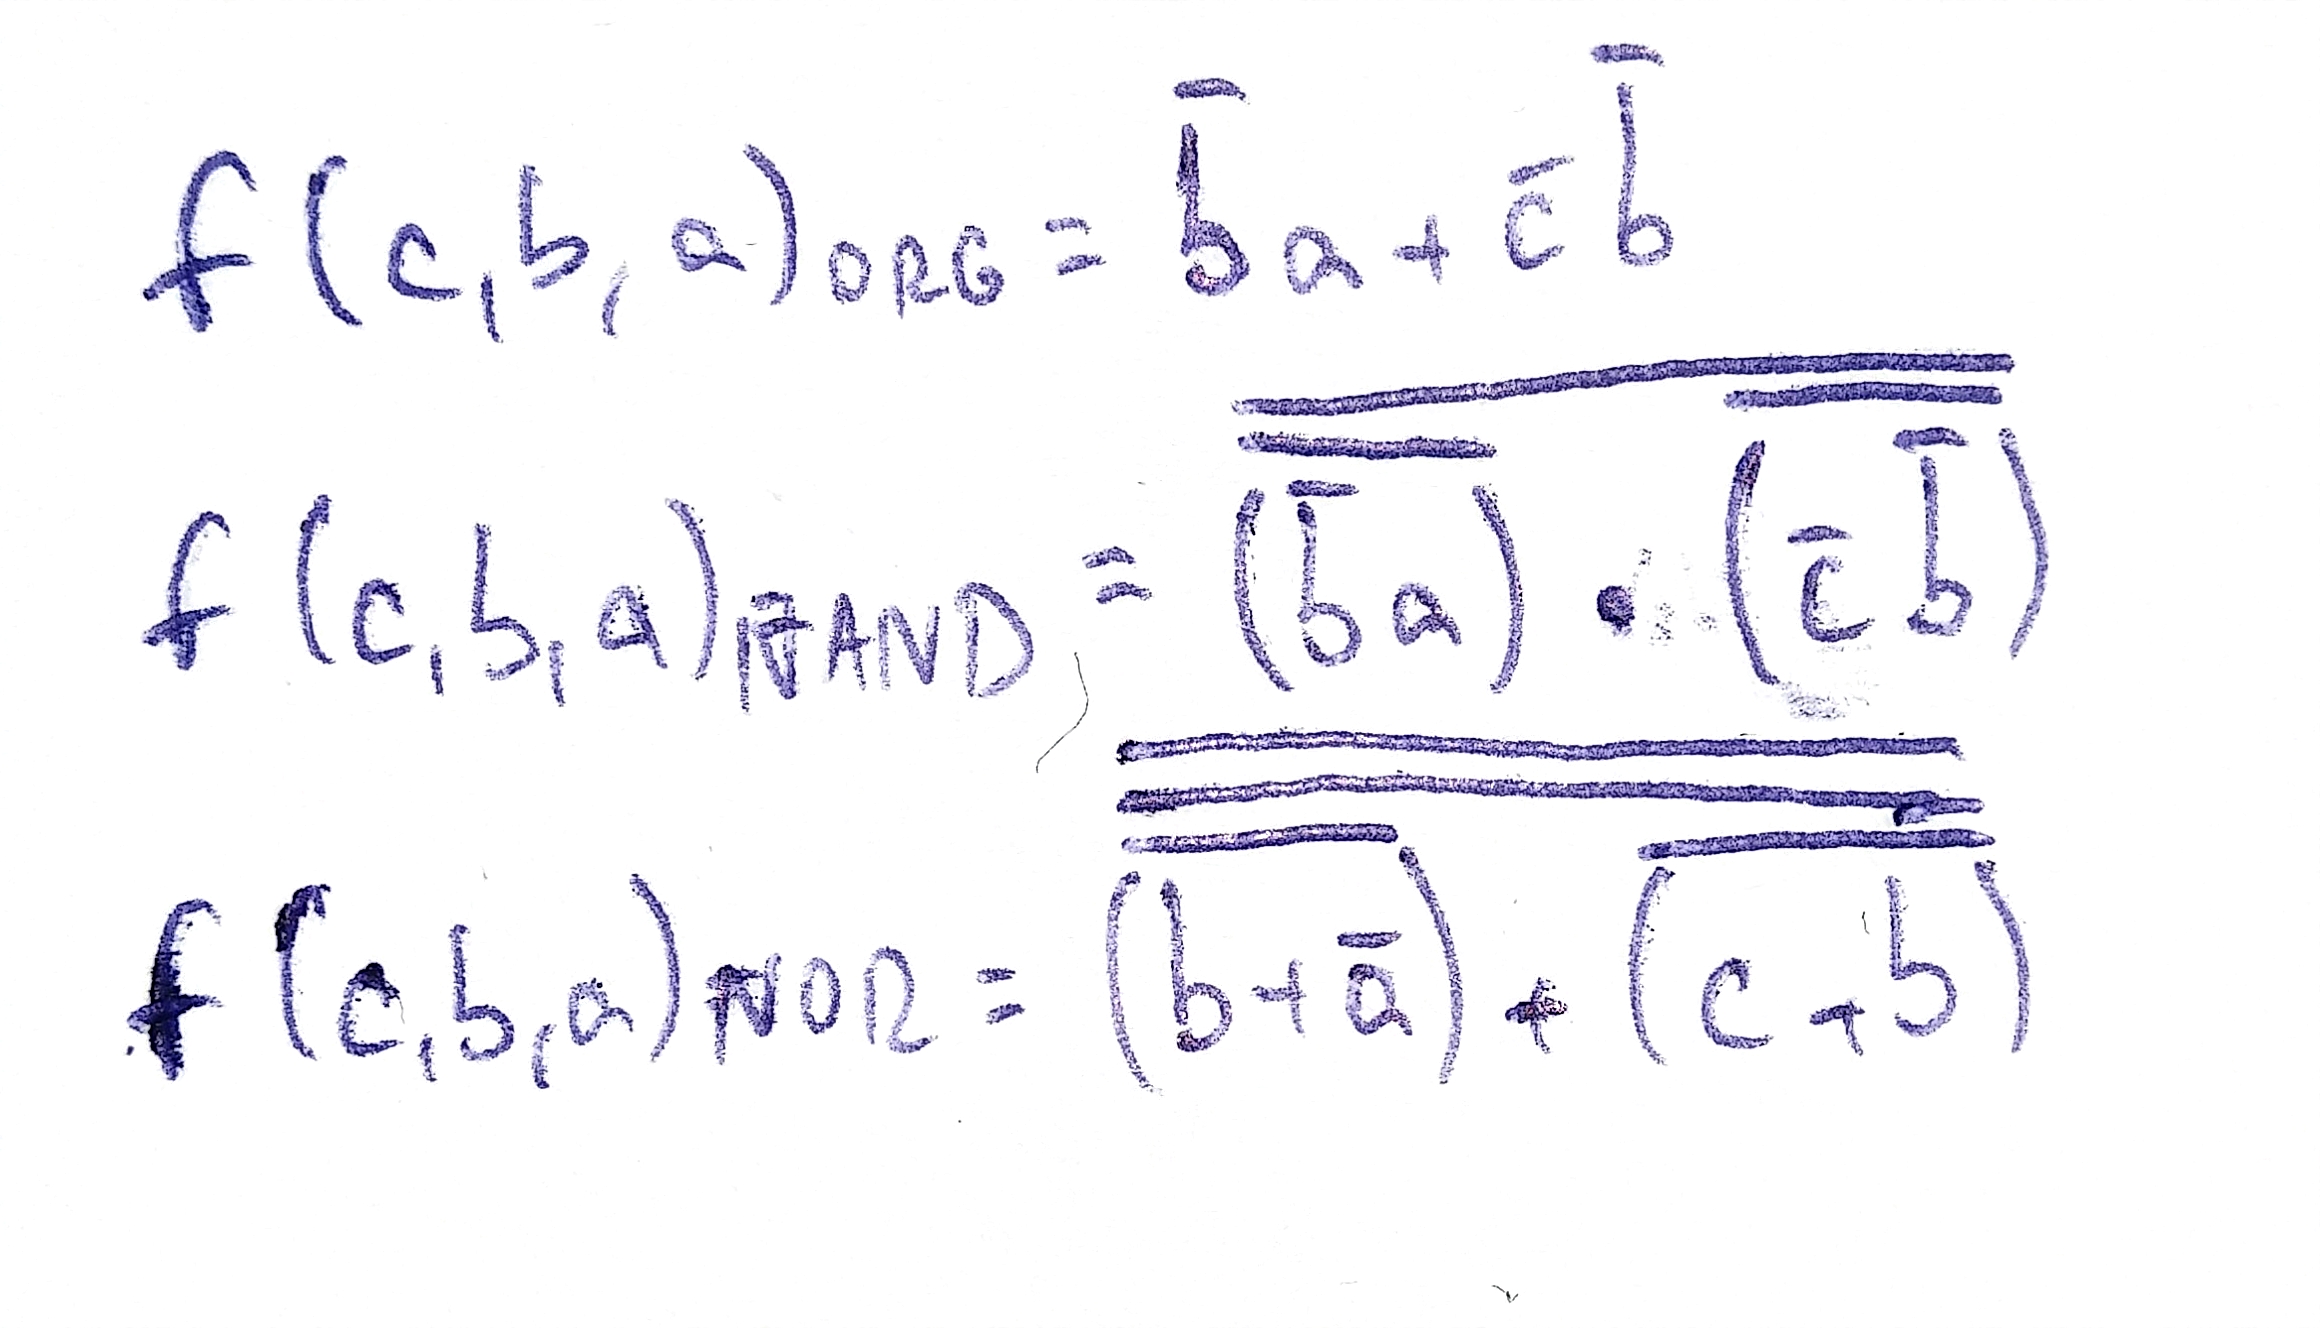 f(c,b,a)ORG = b̅a + c̅b̅
f(c,b,a)NAND = \overline{\overline{(b̅a)} · \overline{(c̅b̅)}}
f(c,b,a)NOR = \overline{\overline{\overline{(b+a̅)} + \overline{(c+b)}}}